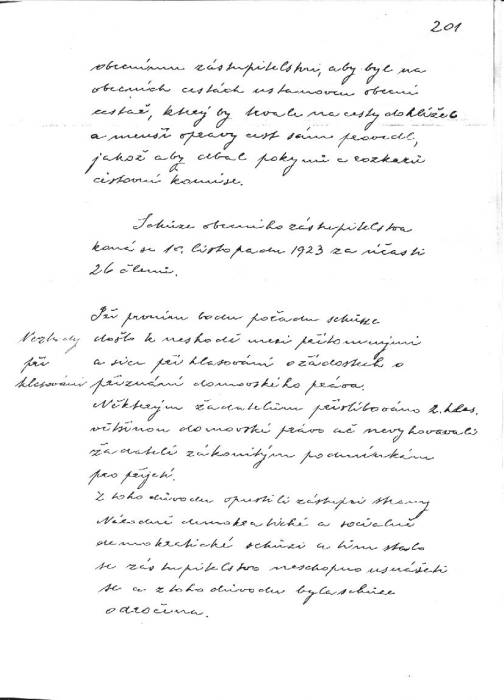 201
obecnímu zastupitelstvu, aby byl na
obecních cestách ustanoven obecní
cestář, který by trvale na cesty dohlížel
a menší opravy cest sám provedl,
jakož aby dbal pokynů a rozkazů
cestovní komise.
Schůze obecního zastupitelstva
koná se 10. listopadu 1923 za účasti
26 členů.
Při prvním bodu pořadu schůze
Neshody
došlo k neshodě mezi přítomnými
při
a sice při hlasování o žádostech o
hlasování
přiznání domovského práva.
Některým žadatelům přislibováno 2. hlas.
většinou domovské právo ač nevyhovovali
žadatelé zákonitým podmínkám
pro přijetí.
Z toho důvodu opustili zástupci strany
Národně demokratické a sociálně
demokratické schůzi a tím stalo
se zastupitelstvo neschopno usnášeti
se a z toho důvodu byla schůze
odročena.